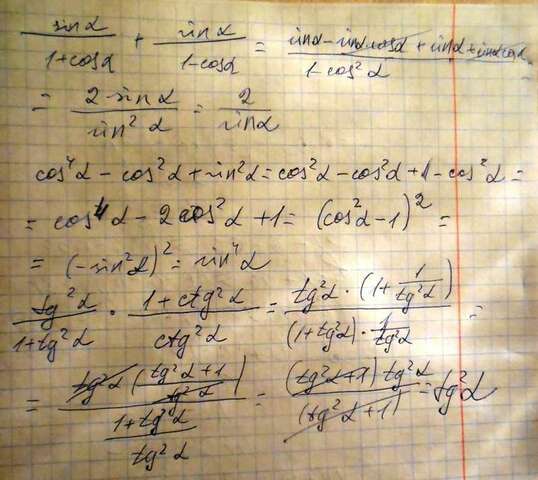 sinα/(1+cosα) + sinα/(1-cosα) = (sinα - sinαcosα + sinα + sinαcosα)/(1-cos²α) =
= 2·sinα/sin²α = 2/sinα
cos⁴α - cos²α + sin²α = cos²α - cos²α + 1 - cos²α =
= cos⁴α - 2cos²α + 1 = (cos²α - 1)² =
= (-sin²α)² = sin⁴α
tg²α/(1+tg²α) · (1+ctg²α)/ctg²α = (tg²α · (1 + 1/tg²α))/((1+tg²α) · 1/tg²α) =
= (tg²α ((tg²α+1)/tg²α))/((1+tg²α)/tg²α) = ((tg²α+1) tg²α)/(tg²α+1) = tg²α